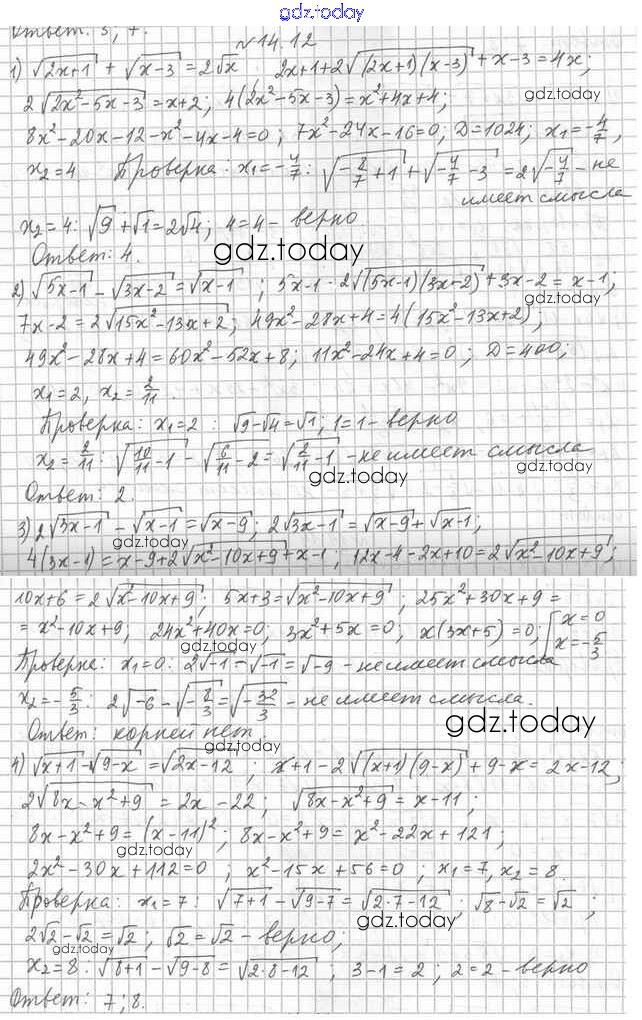 gdz.today
Ответ: 3; 7.
№14.12
1) √(2x+1) + √(x-3) = 2√x    2x+1+2√((2x+1)(x-3)) + x-3 = 4x;
2√(2x²-5x-3) = x+2; 4(2x²-5x-3) = x²+4x+4;
gdz.today
8x²-20x-12-x²-4x-4=0; 7x²-24x-16=0; D=1024; x₁=-4/7,
x₂=4   Проверка: x₁=-4/7: √(-8/7+1) + √(-4/7-3) = 2√(-4/7) - не
имеет смысла
x₂=4: √9+√1=2√4; 4=4 - верно
Ответ: 4.
gdz.today
2) √(5x-1) - √(3x-2) = √(x-1) ; 5x-1-2√((5x-1)(3x-2)) + 3x-2 = x-1;
gdz.today
7x-2=2√(15x²-13x+2); 49x²-28x+4=4(15x²-13x+2);
49x²-28x+4=60x²-52x+8; 11x²-24x+4=0; D=400;
x₁=2, x₂=2/11.
Проверка: x₁=2: √9-√4=√1; 1=1 - верно
x₂=2/11: √(10/11-1) - √(6/11-2) = √(2/11-1) - не имеет смысла
gdz.today
gdz.today
Ответ: 2.
3) 2√(3x-1) - √(x-1) = √(x-9); 2√(3x-1) = √(x-9)+√(x-1);
gdz.today
4(3x-1) = x-9+2√(x²-10x+9)+x-1; 12x-4-2x+10=2√(x²-10x+9);
10x+6=2√(x²-10x+9); 5x+3=√(x²-10x+9); 25x²+30x+9=
= x²-10x+9; 24x²+40x=0; 3x²+5x=0; x(3x+5)=0; [x=0 x=-5/3
gdz.today
Проверка: x₁=0: 2√-1-√-1=√-9 - не имеет смысла
x₂=-5/3: 2√-6-√(-8/3)=√(-32/3) - не имеет смысла.
Ответ: корней нет.
gdz.today
4) √(x+1)-√(9-x)=√(2x-12); x+1-2√((x+1)(9-x))+9-x=2x-12;
2√(8x-x²+9) = 2x-22; √(8x-x²+9) = x-11;
8x-x²+9=(x-11)²; 8x-x²+9=x²-22x+121;
gdz.today
2x²-30x+112=0; x²-15x+56=0; x₁=7, x₂=8.
Проверка: x₁=7: √(7+1)-√(9-7)=√(2·7-12); √8-√2=√2;
gdz.today
2√2-√2=√2; √2=√2 - верно;
gdz.today
x₂=8: √(8+1)-√(9-8)=√(2·8-12); 3-1=2; 2=2 - верно
Ответ: 7; 8.